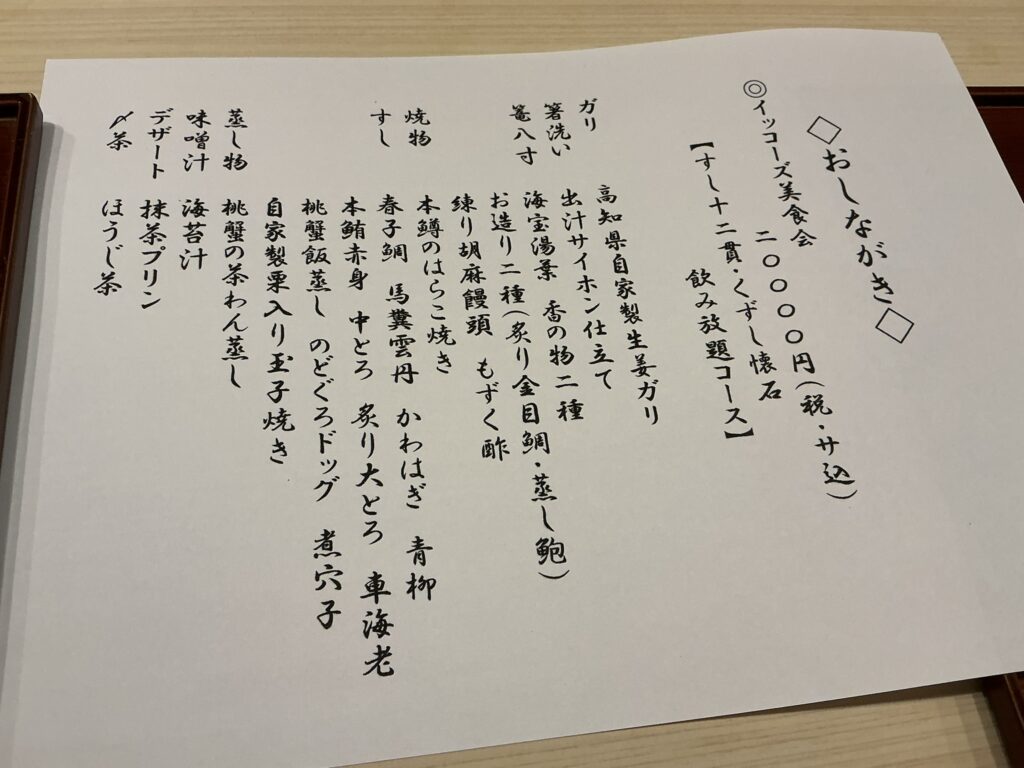 ◇おしながき◇
◎イッコーズ美食会
二〇〇〇〇円(税・サ込)
【すし十二貫・くずし懐石
飲み放題コース】
ガリ 高知県自家製生姜ガリ
箸洗い 出汁サイホン仕立て
篭八寸 海宝湯葉 香の物二種
お造り二種(炙り金目鯛・蒸し鮑)
練り胡麻饅頭 もずく酢
焼物 本鱒のはらこ焼き
すし 春子鯛 馬糞雲丹 かわはぎ 青柳
本鮪赤身 中とろ 炙り大とろ 車海老
桃蟹飯蒸し のどぐろドッグ 煮穴子
自家製栗入り玉子焼き
蒸し物 桃蟹の茶わん蒸し
味噌汁 海苔汁
デザート 抹茶プリン
〆茶 ほうじ茶